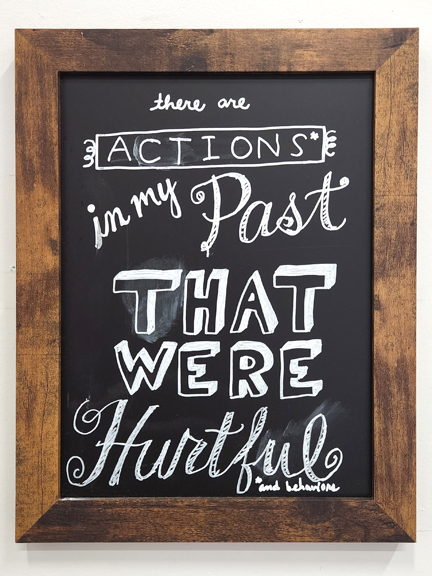 there are
ACTIONS*
in my Past
THAT
WERE
Hurtful
*and behaviors